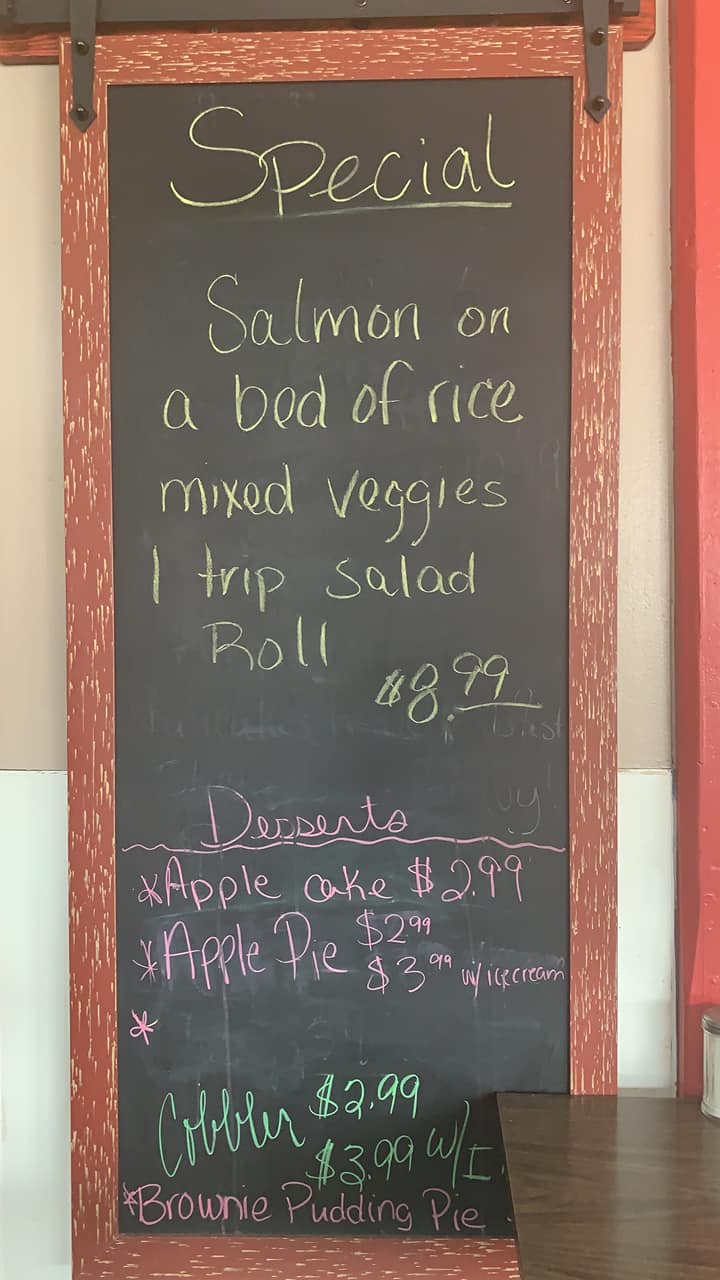 Special
Salmon on
a bed of rice
mixed veggies
1 trip salad
Roll
$8.99
Desserts
*Apple cake $2.99
*Apple Pie $2.99
$3.99 w/ icecream
*
Cobbler $2.99
$3.99 w/I
*Brownie Pudding Pie